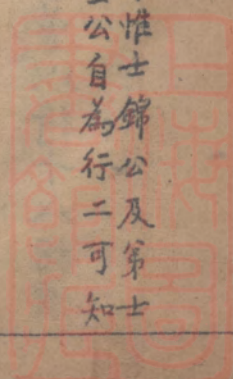 惟士錦公及第士
公自為行二可知